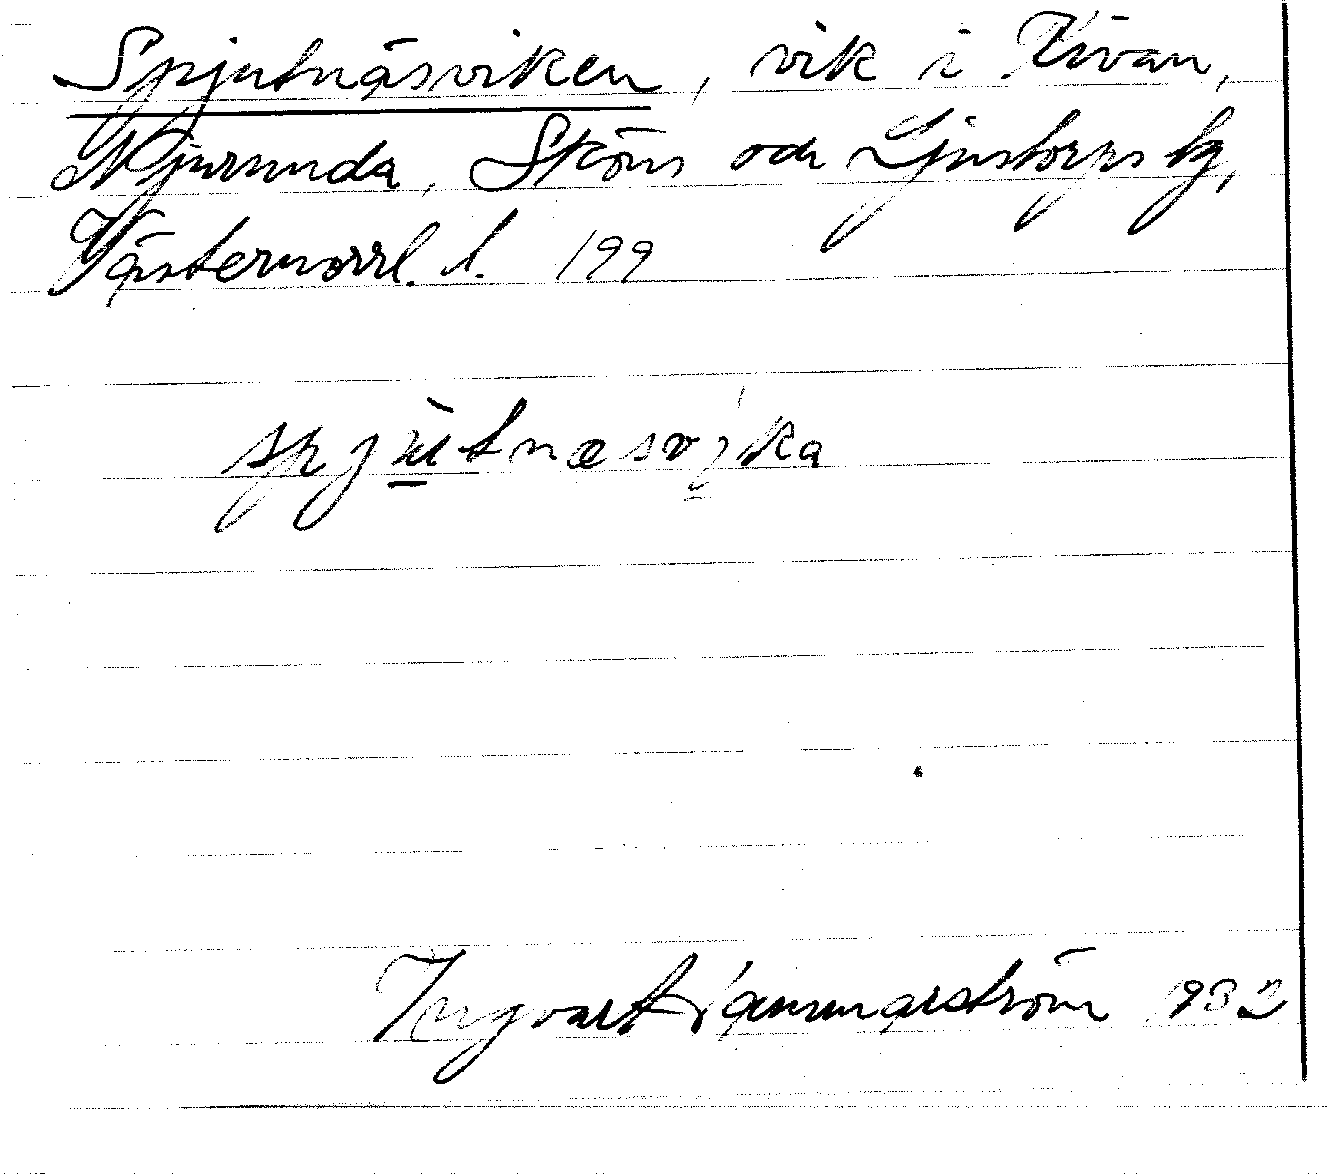 Spjutnäsviken, vik i
Njurunda, Sköns och Ljustorps tg,
Västernorrl. l. 199
spju̲tnæsvika
Ingvart Hammarström 1932